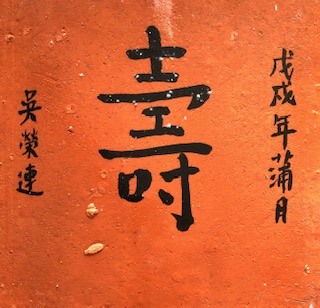 戊戌年蒲月
壽
吳榮連